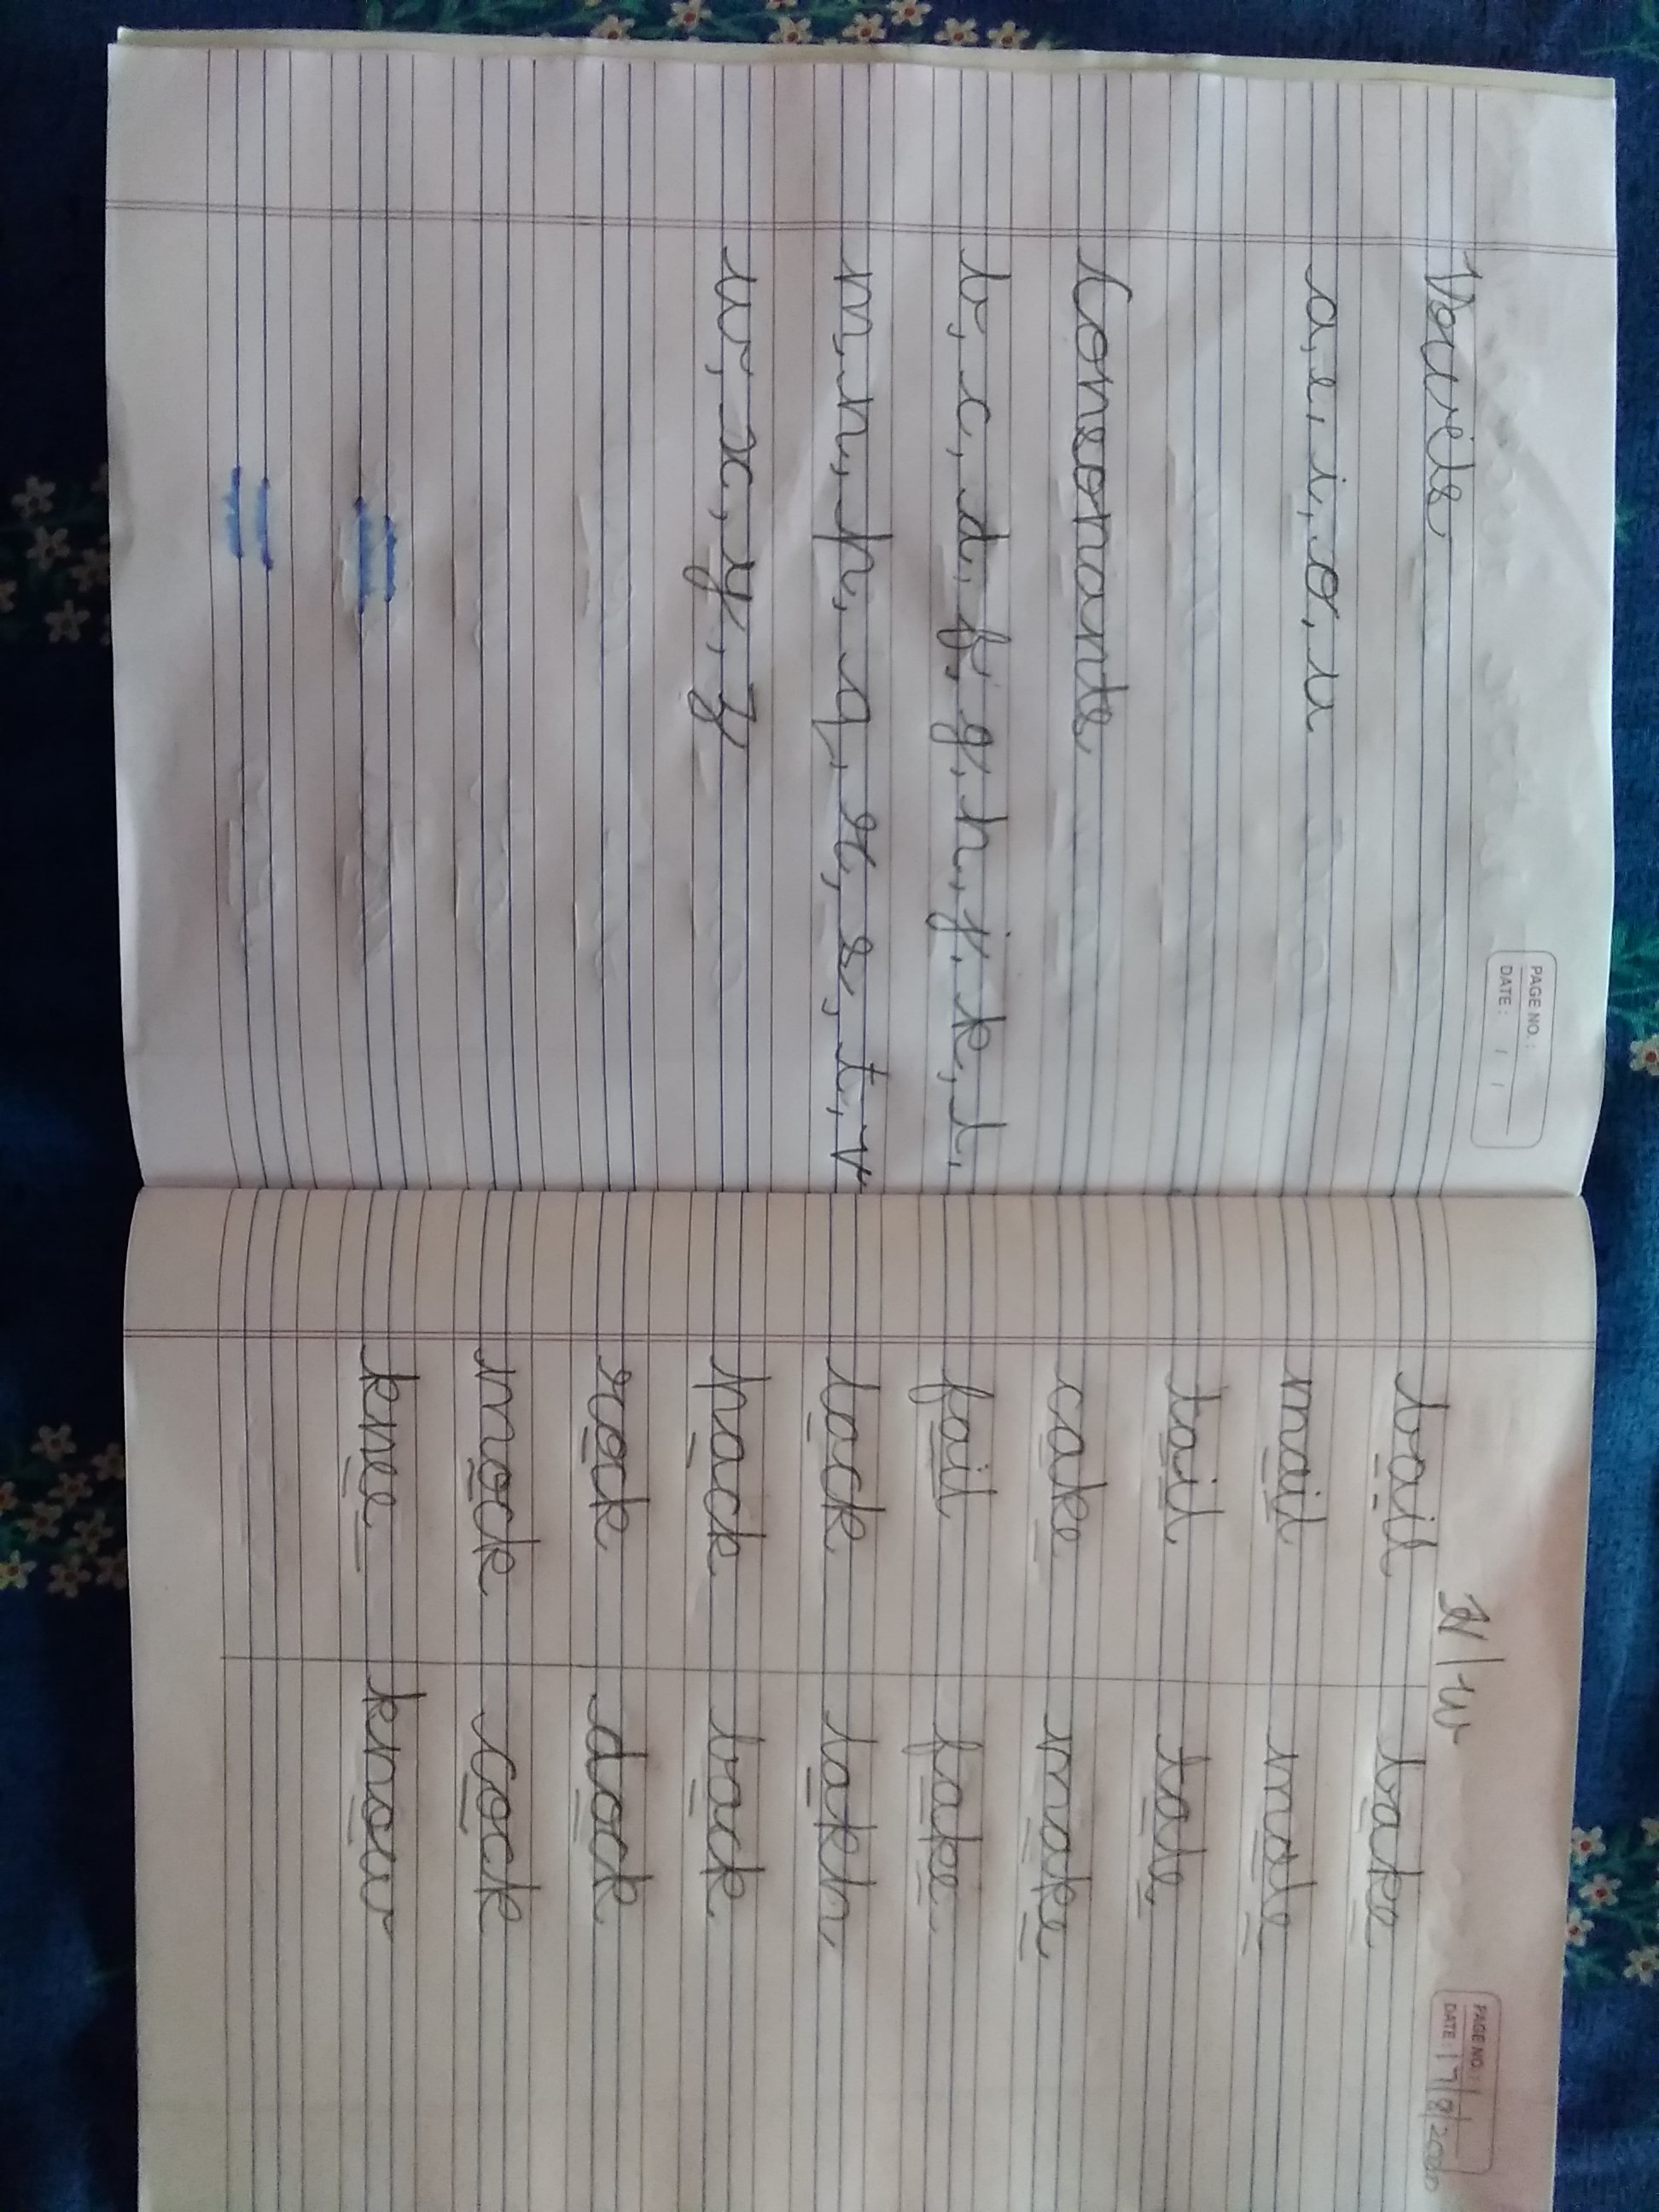 PAGE NO.:
DATE: / /
Vowels
a, e, i, o, u
Consonants
b, c, d, f, g, h, j, k, l,
m, n, p, q, r, s, t, v
w, x, y, z
PAGE NO.:
DATE: 17/8/2020
H/w
bail bake
mail male
tail tale
cake make
fail fake
lack lakh
pack back
dock
mock cock
knee know